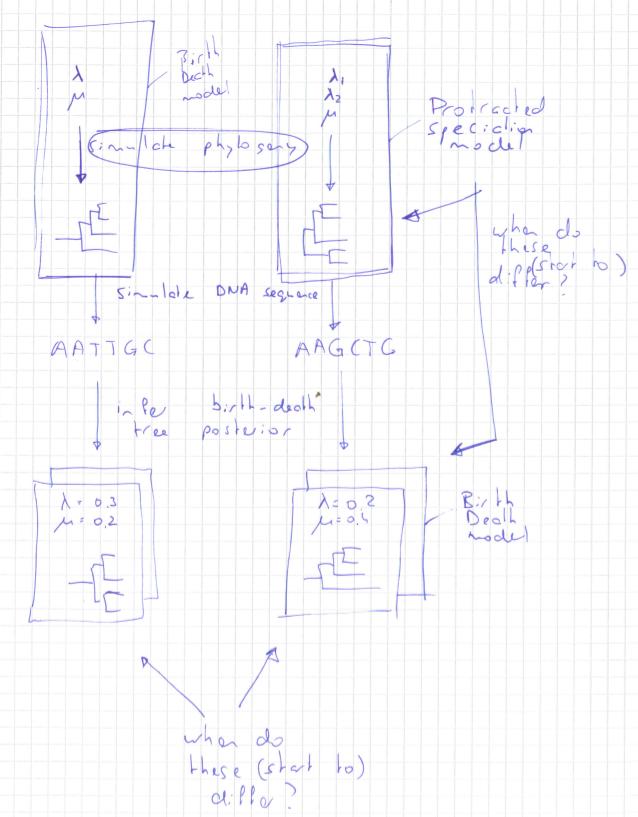 λ
μ
Birth
Death
model
λ₁
λ₂
μ
Protracted
speciation
model
simulate phylogeny
when do
these
(start to)
differ?
simulate DNA sequence
AATTGC
AAGCTG
infer birth-death
tree posterior
λ = 0.3
μ = 0.2
λ = 0.2
μ = 0.4
Birth
Death
model
when do
these (start to)
differ?